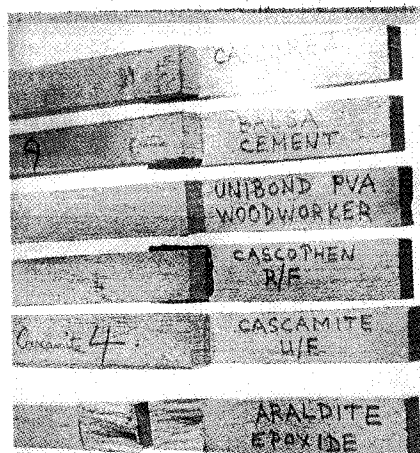 BALSA
CEMENT
9
UNIBOND PVA
WOODWORKER
CASCOPHEN
R/F
CASCAMITE
U/F
4.
ARALDITE
EPOXIDE